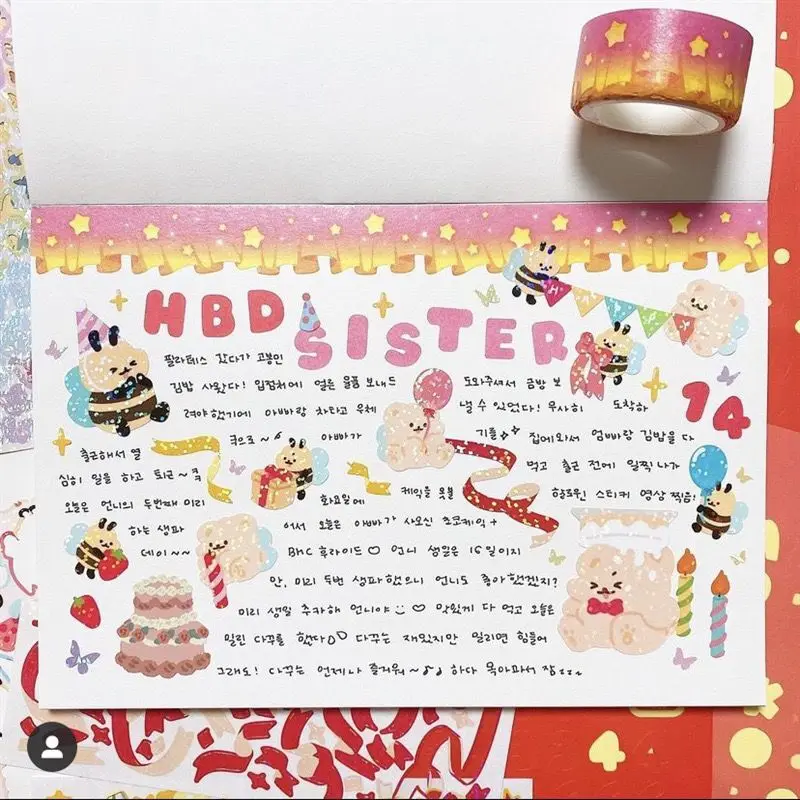 HBD SISTER
14
필라테스 갔다가 고봉민
김밥 사왔다! 입점처에 얼른 물품 보내드
려야했기에 아빠랑 차타고 우체
국으로~ 아빠가
도와주셔서 금방 보
낼 수 있었다! 무사히 도착하
기를 집에와서 엄빠랑 김밥을 다
먹고 출근 전에 일찍 나가
할로윈 스티커 영상 찍음!
출근해서 열
심히 일을 하고 퇴근~
오늘은 언니의 두번째 미리
하는 생파
데이~~
화요일에 케잌을 못불
어서 오늘은 아빠가 사오신 초코케잌+
BHC 후라이드♡ 언니 생일은 16일이지
만, 미리 두번 생파했으니 언니도 좋아했겠지?
미리 생일 추카해 언니야 ♡ 맛있게 다 먹고 오늘은
밀린 다꾸를 했다 다꾸는 재밌지만 밀리면 힘들어
그래도! 다꾸는 언제나 즐거워~♪♪ 하다 목아파서 잠zzz